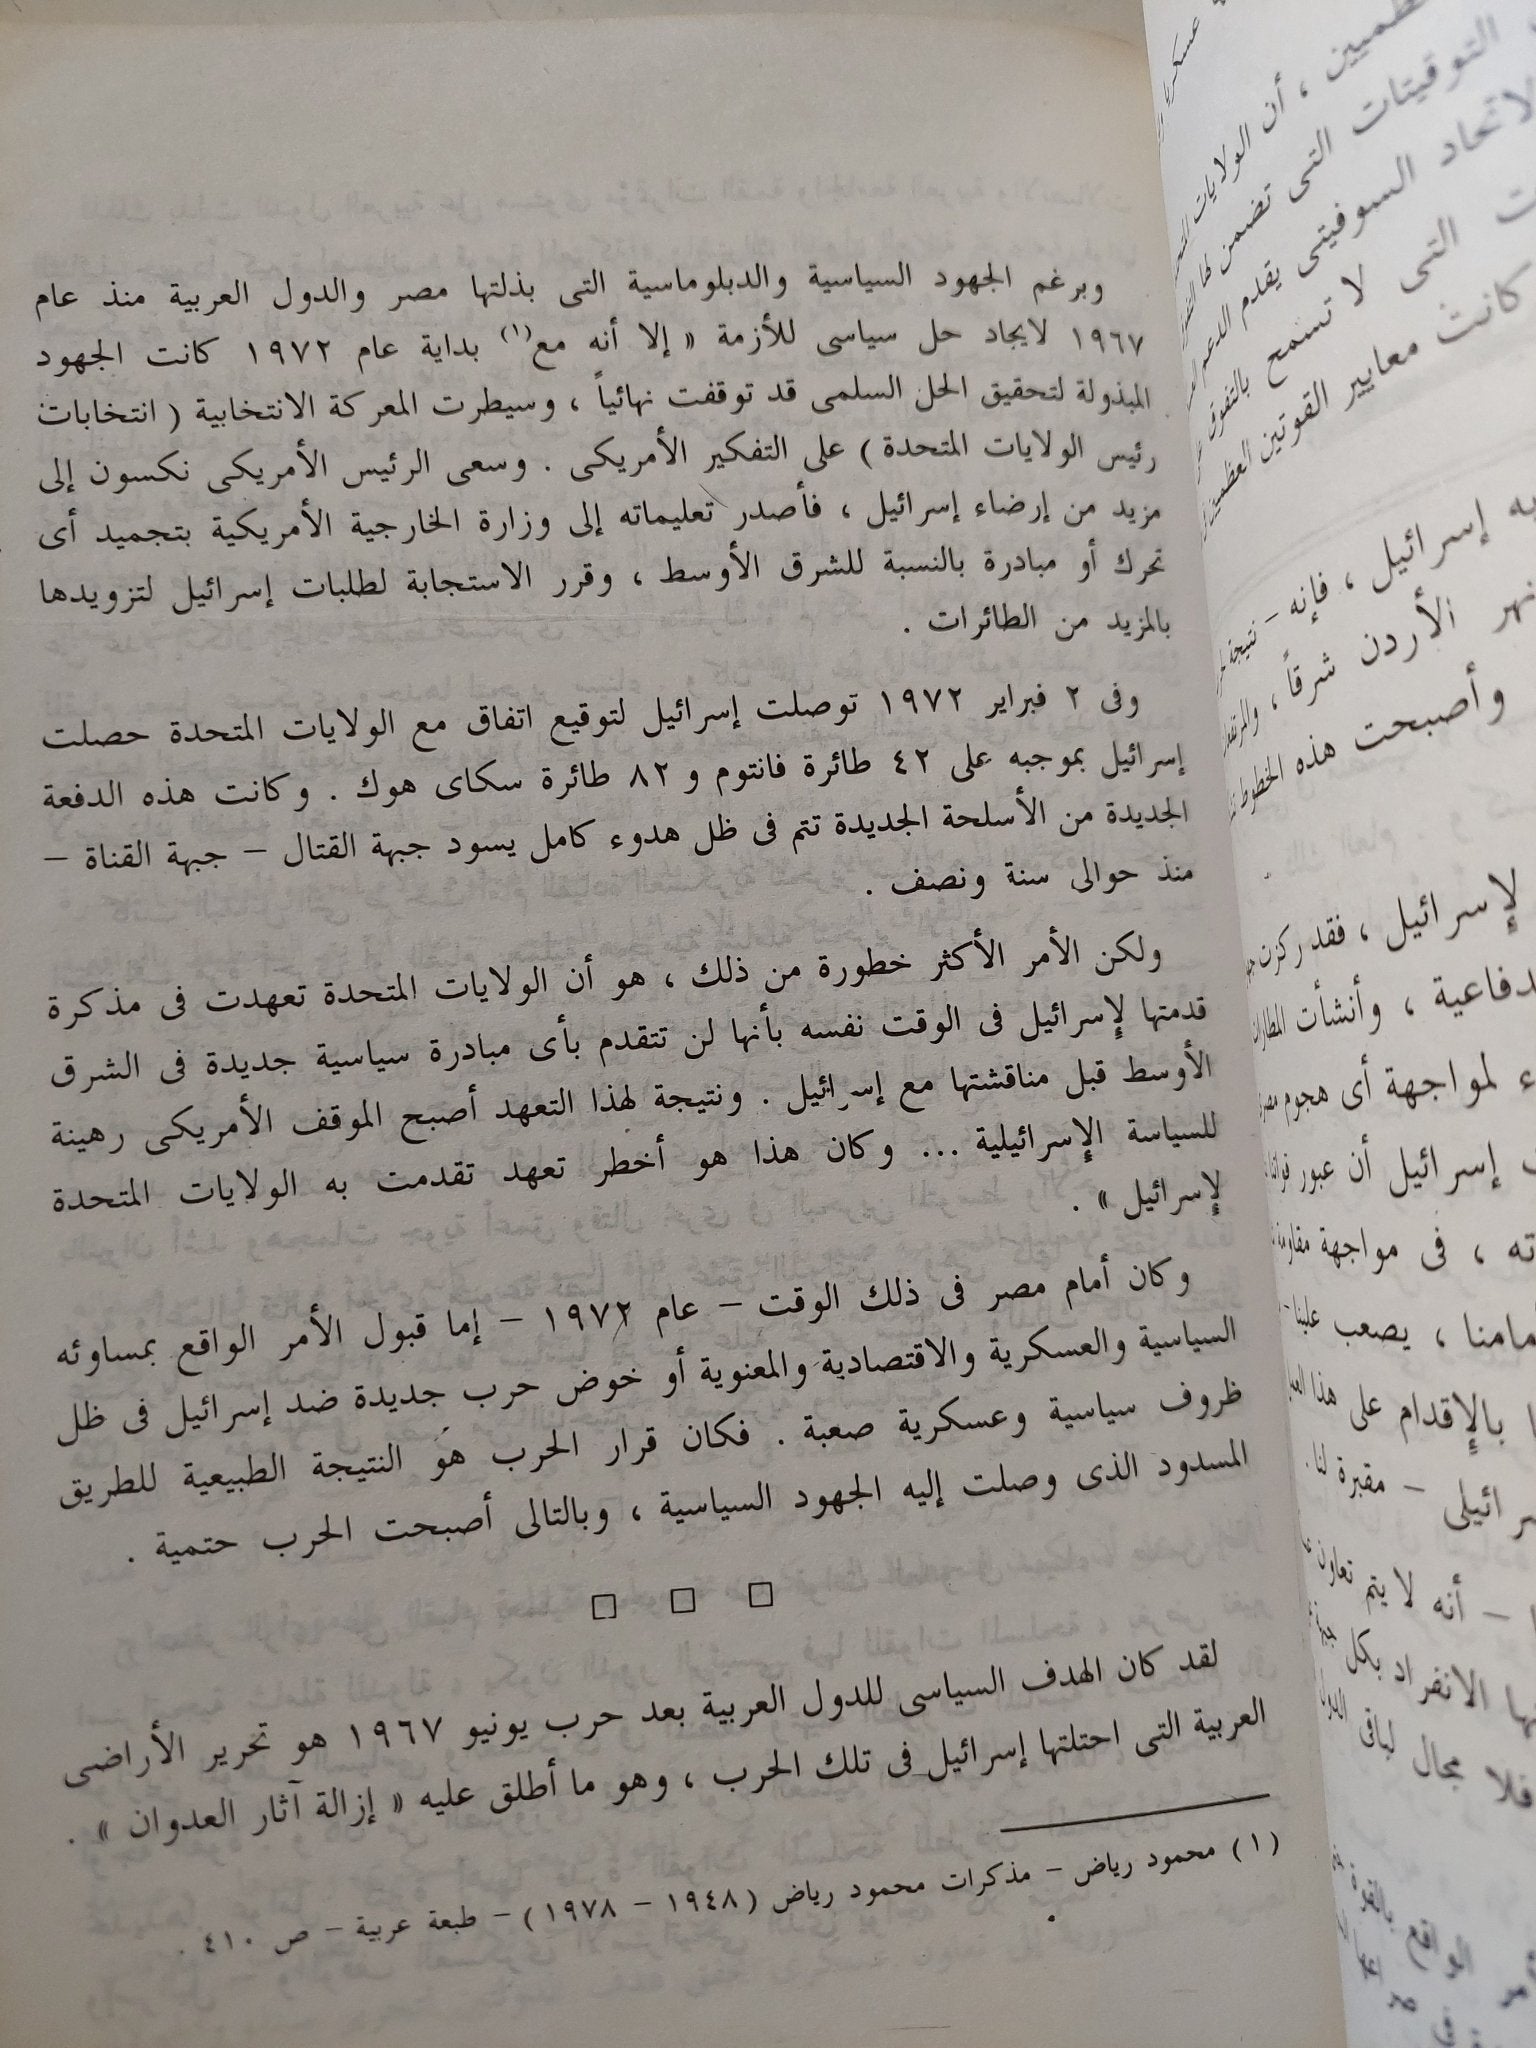 وبرغم الجهود السياسية والدبلوماسية التى بذلتها مصر والدول العربية منذ عام
١٩٦٧ لايجاد حل سياسى للأزمة « إلا أنه مع(١) بداية عام ١٩٧٢ كانت الجهود
المبذولة لتحقيق الحل السلمى قد توقفت نهائياً ، وسيطرت المعركة الانتخابية ( انتخابات
رئيس الولايات المتحدة ) على التفكير الأمريكى . وسعى الرئيس الأمريكى نكسون إلى
مزيد من إرضاء إسرائيل ، فأصدر تعليماته إلى وزارة الخارجية الأمريكية بتجميد أى
تحرك أو مبادرة بالنسبة للشرق الأوسط ، وقرر الاستجابة لطلبات إسرائيل لتزويدها
بالمزيد من الطائرات .
وفى ٢ فبراير ١٩٧٢ توصلت إسرائيل لتوقيع اتفاق مع الولايات المتحدة حصلت
إسرائيل بموجبه على ٤٢ طائرة فانتوم و ٨٢ طائرة سكاى هوك . وكانت هذه الدفعة
الجديدة من الأسلحة الجديدة تتم فى ظل هدوء كامل يسود جبهة القتال – جبهة القناة –
منذ حوالى سنة ونصف .
ولكن الأمر الأكثر خطورة من ذلك ، هو أن الولايات المتحدة تعهدت فى مذكرة
قدمتها لإسرائيل فى الوقت نفسه بأنها لن تتقدم بأى مبادرة سياسية جديدة فى الشرق
الأوسط قبل مناقشتها مع إسرائيل . ونتيجة لهذا التعهد أصبح الموقف الأمريكى رهينة
للسياسة الإسرائيلية ... وكان هذا هو أخطر تعهد تقدمت به الولايات المتحدة
لإسرائيل » .
وكان أمام مصر فى ذلك الوقت – عام ١٩٧٢ – إما قبول الأمر الواقع بمساوئه
السياسية والعسكرية والاقتصادية والمعنوية أو خوض حرب جديدة ضد إسرائيل فى ظل
ظروف سياسية وعسكرية صعبة . فكان قرار الحرب هو النتيجة الطبيعية للطريق
المسدود الذى وصلت إليه الجهود السياسية ، وبالتالى أصبحت الحرب حتمية .
□ □ □
لقد كان الهدف السياسى للدول العربية بعد حرب يونيو ١٩٦٧ هو تحرير الأراضى
العربية التى احتلتها إسرائيل فى تلك الحرب ، وهو ما أطلق عليه « إزالة آثار العدوان » .
(١) محمود رياض – مذكرات محمود رياض (١٩٤٨ – ١٩٧٨) – طبعة عربية – ص ٤١٠ .
، أن الولايات
التوقيتات التى تضمن لها
الاتحاد السوفيتى يقدم الدعم
التى لا تسمح بالتفوق
كانت معايير القوتين العظميين
به إسرائيل ، فإنه – نتيجة
نهر الأردن شرقاً ،
وأصبحت هذه الخطوط
لإسرائيل ، فقد ركزت
، وأنشأت
لمواجهة أى هجوم
إسرائيل أن عبور
، فى مواجهة مقاومة
، يصعب علينا
بالإقدام على هذا
– مقبرة لنا .
– أنه لا يتم تعاون
الانفراد بكل
فلا مجال لباقى
الواقع بالقوة